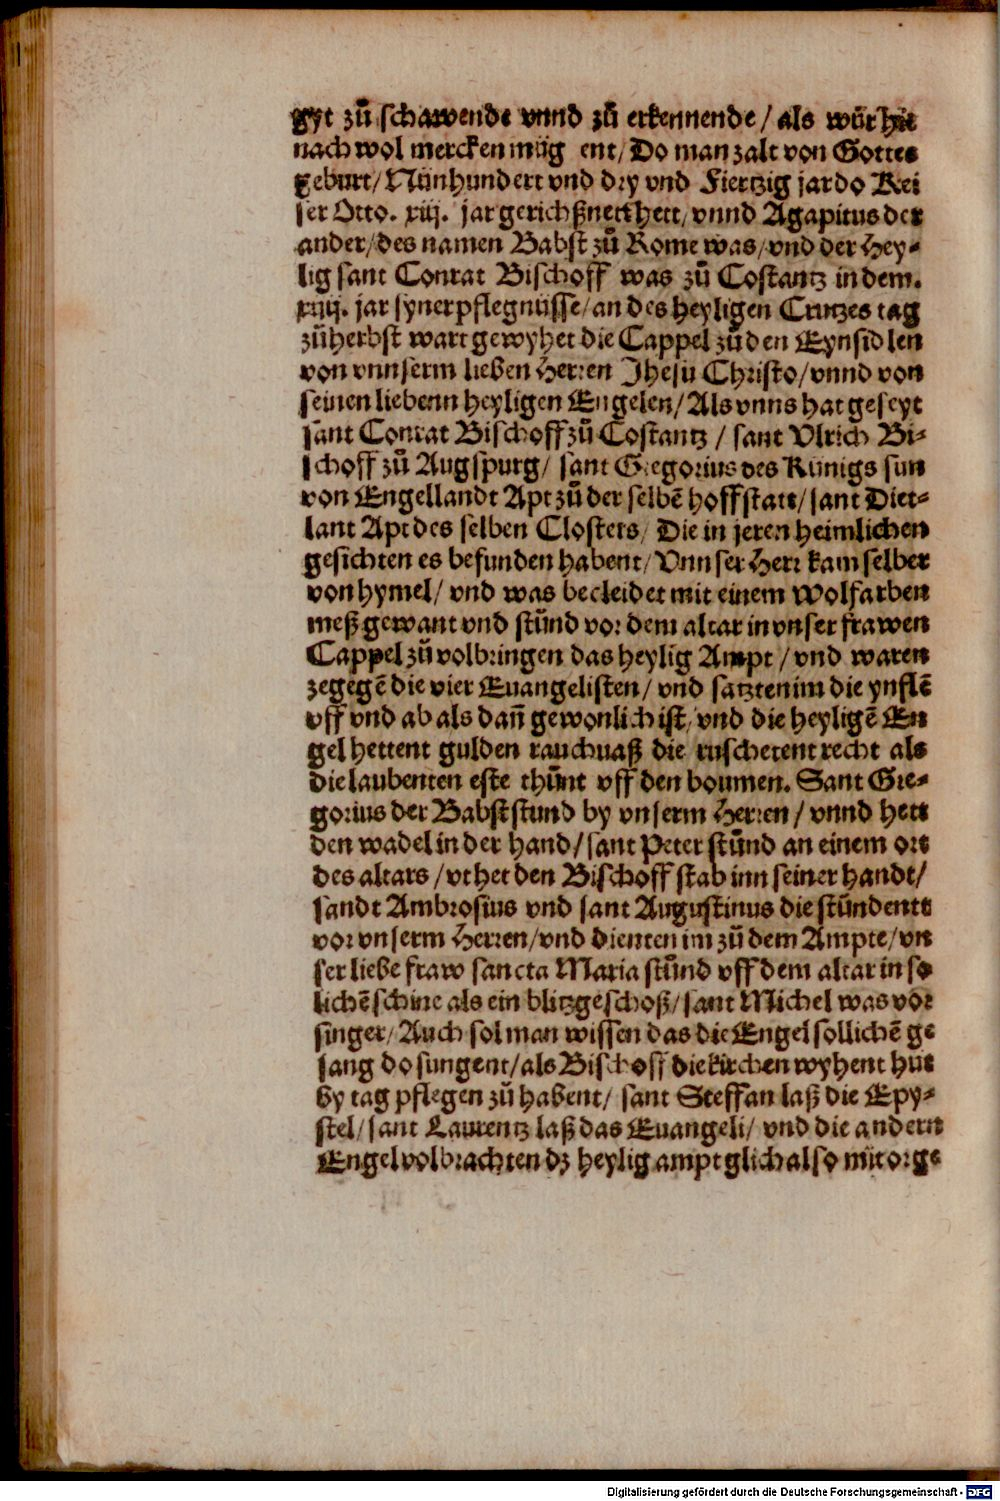 gyt zů schawende vnnd zů erkennende / als wür hie
nach wol mercken müg ent / Do man zalt von Gottes
geburt / Nünhundert vnd dry vnd Fiertzig jar do Kei
ser Otto. xiij. jar gerichßnett hett / vnnd Agapitus der
ander / des namen Babst zů Rome was / vnd der Hey⸗
lig sant Conrat Bischoff was zů Costantz in dem.
xiiij. jar syner pflegnüsse / an des heyligen Crutzes tag
zů herbst wart gewyhet die Cappel zů den Eynsidlen
von vnnserm lieben Herren Jhesu Christo / vnnd von
seinen liebenn heyligen Engelen / Als vnns hat geseyt
sant Conrat Bischoff zů Costantz / sant Vlrich Bi⸗
schoff zů Augspurg / sant Gregorius des Künigs sun
von Engellandt Apt zů der selbē hoffstatt / sant Diet⸗
lant Apt des selben Closters / Die in jeren heimlichen
gesichten es befunden habent / Vnnser Herr kam selber
von hymel / vnd was becleidet mit einem Wolfarben
meß gewant vnd stůnd vor dem altar in vnser frawen
Cappel zů volbringen das heylig Ampt / vnd waren
zegegē die vier Euangelisten / vnd satzten im die ynflē
vff vnd ab als dañ gewonlich ist / vnd die heyligē En
gel hettent gulden rauchuaß die ruschetent recht als
die laubenten este thůnt vff den boumen. Sant Gre⸗
gorius der Babst stund by vnserm Herren / vnnd hett
den wadel in der hand / sant Peter stůnd an einem ort
des altars / vt het den Bischoff stab inn seiner handt /
sandt Ambrosius vnd sant Augustinus die stůndentt
vor vnserm Herren / vnd dienten im zů dem Ampte / vn
ser liebe fraw sancta Maria stůnd vff dem altar in so
lichē schine als ein blitzgeschoß / sant Michel was vor
singer / Auch sol man wissen das die Engel sollichē ge
sang do sungent / als Bischoff die kirchen wyhent hüt
by tag pflegen zů habent / sant Steffan laß die Epy⸗
stel / sant Laurentz laß das Euangeli / vnd die andern
Engel volbrachten dz heylig ampt glich also mit orge
Digitalisierung gefördert durch die Deutsche Forschungsgemeinschaft - DFG